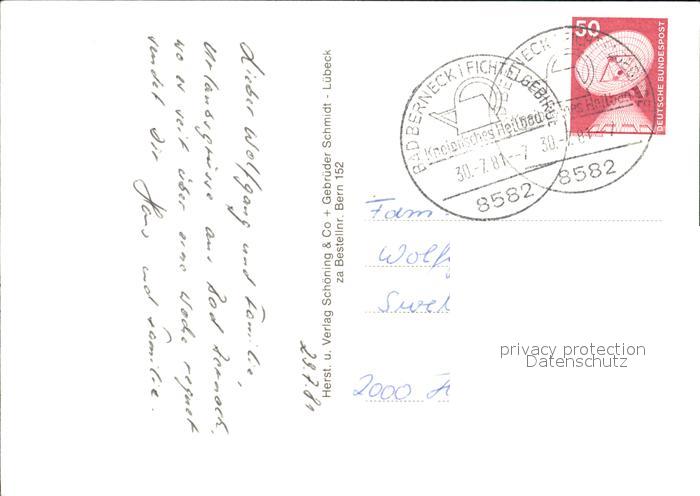 Lieber Wolfgang und Familie,
Urlaubsgrüsse aus Bad Berneck,
wo es seit über eine Woche regnet
sendet Dir Hans und Familie.
29.7.81
Herst. u. Verlag Schöning & Co + Gebrüder Schmidt - Lübeck
za Bestellnr. Bern 152
50
DEUTSCHE BUNDESPOST
BAD BERNECK I FICHTELGEBIRGE
Kneippsches Heilbad
30.-7.81.-7
8582
30.-7.81.-7
8582
Fam
Wolf
2000 H
privacy protection
Datenschutz